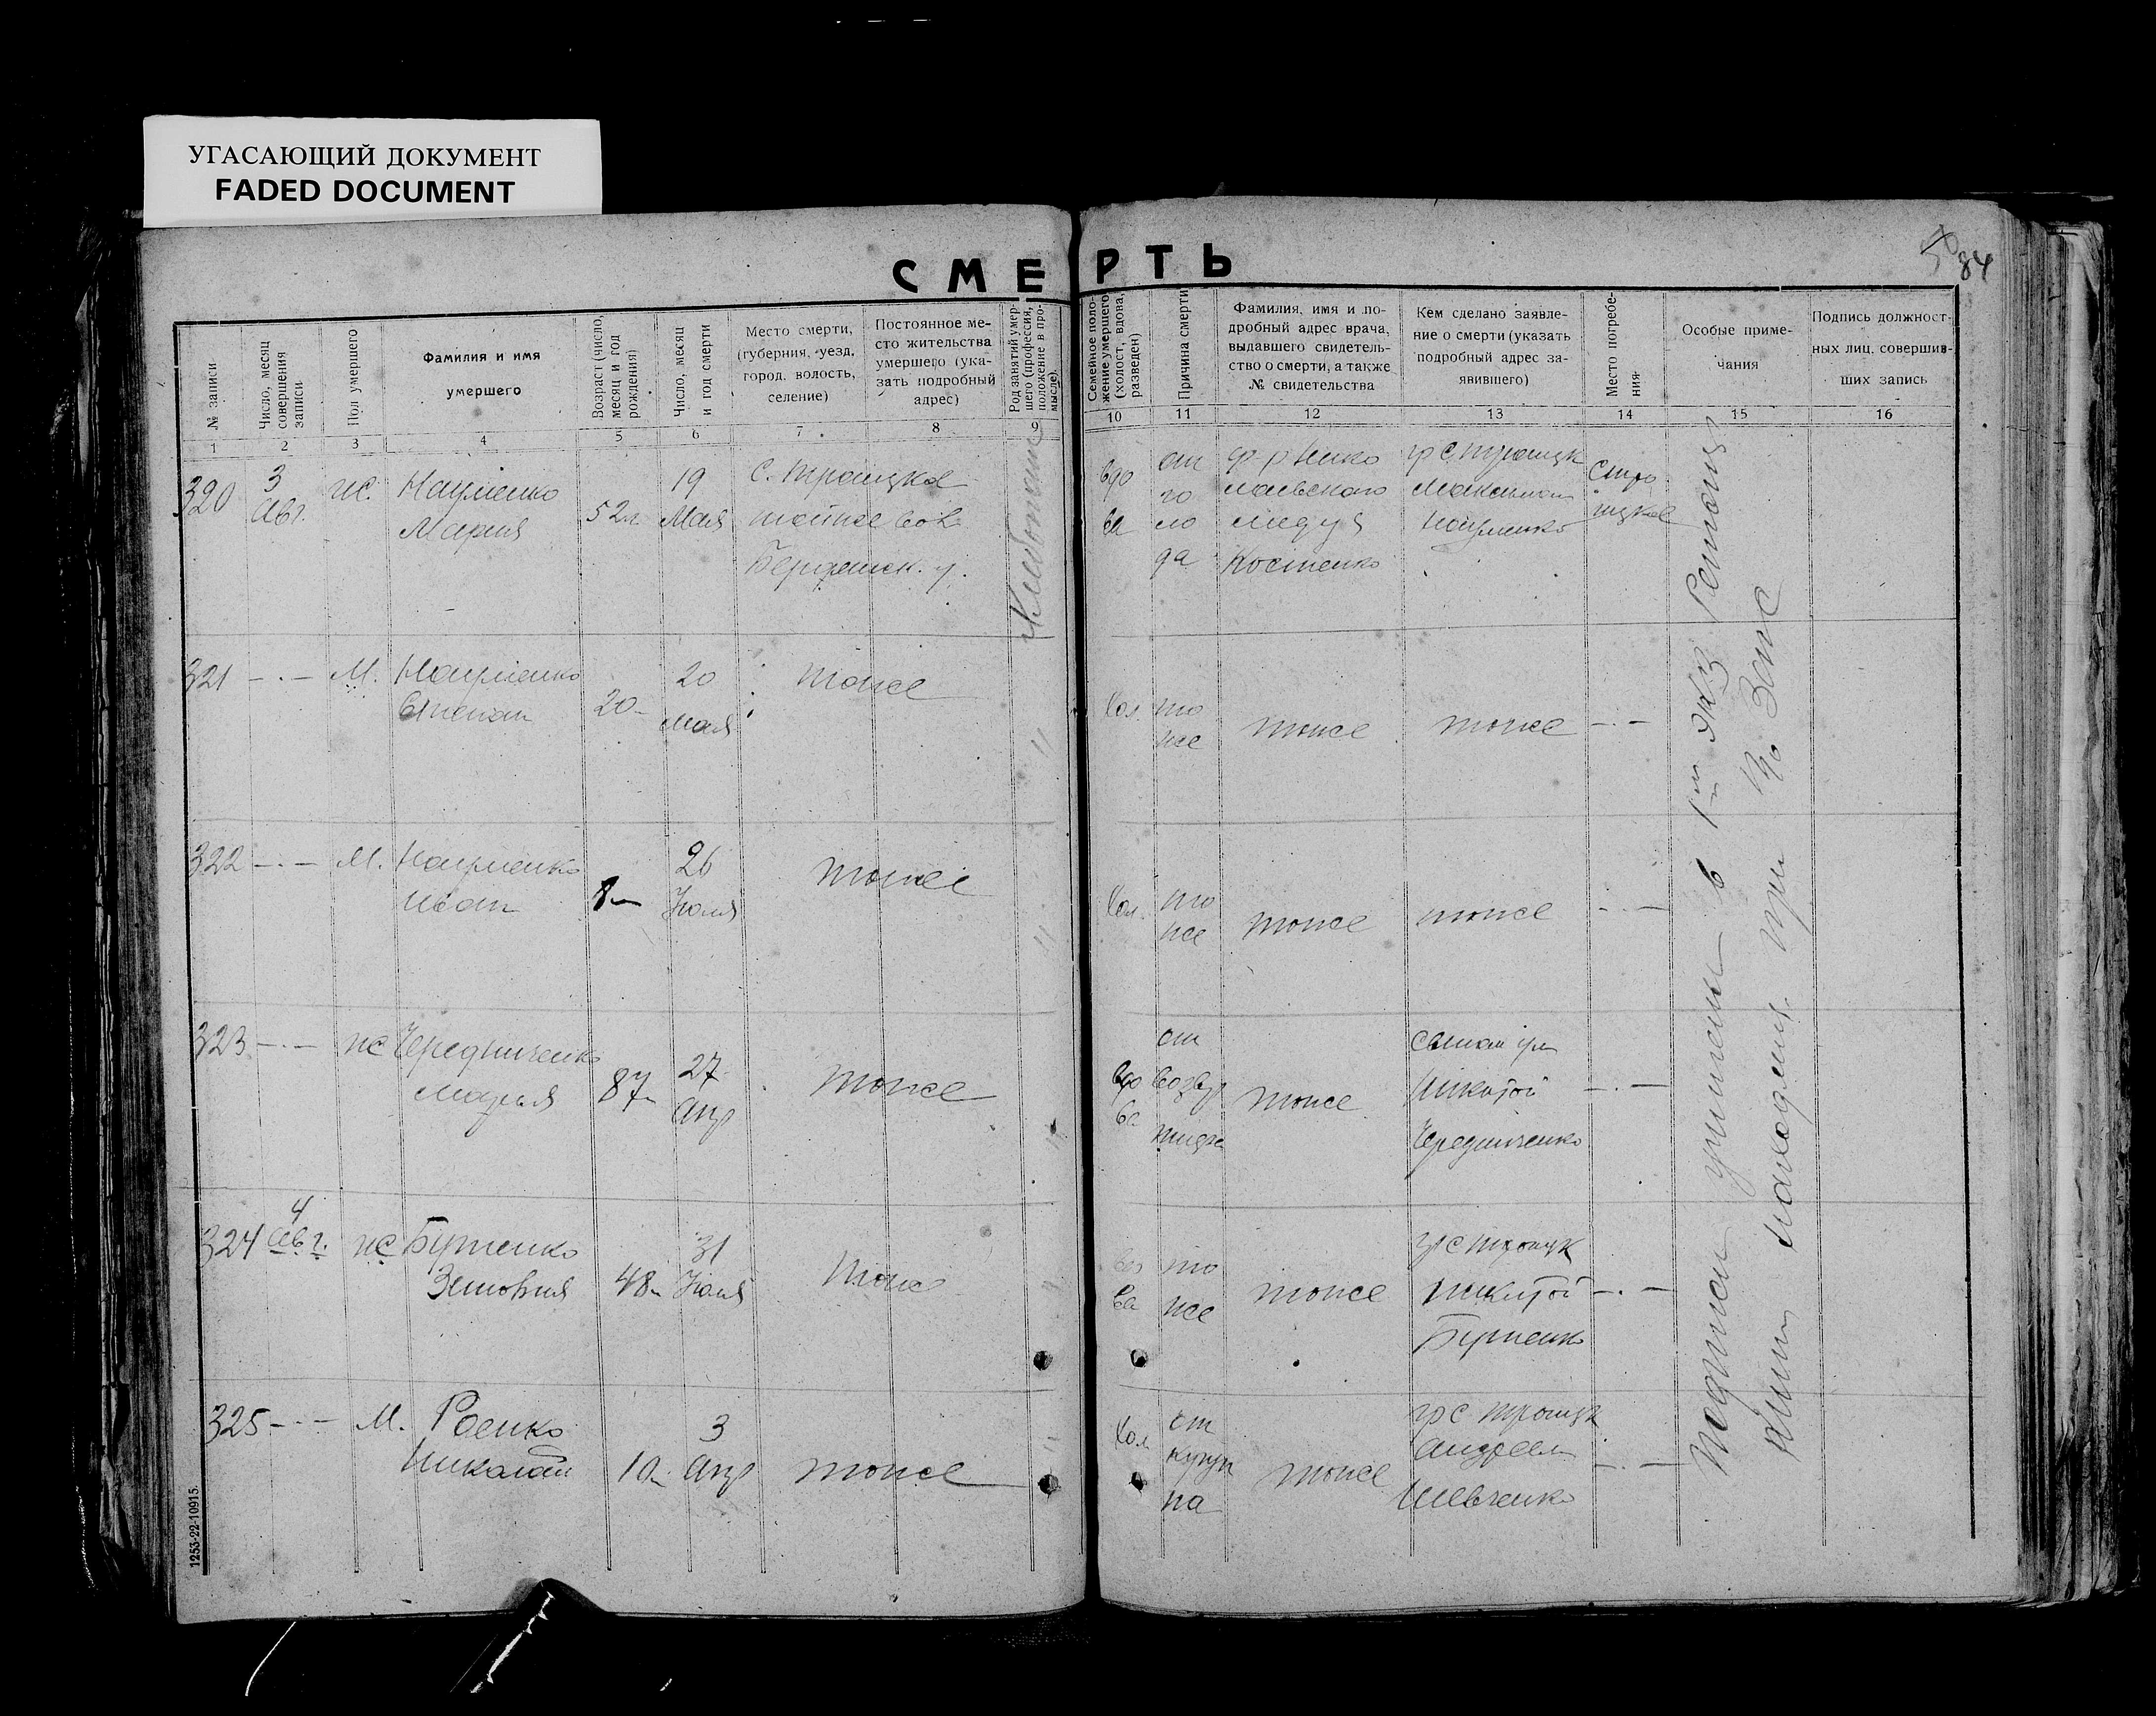 УГАСАЮЩИЙ ДОКУМЕНТ
FADED DOCUMENT
СМЕРТЬ
84
№ записи
Число, месяц
совершения
записи
Пол умершего
Фамилия и имя
умершего
Возраст (число,
месяц и год
рождения)
Число, месяц
и год смерти
Место смерти,
(губерния, уезд,
город, волость,
селение)
Постоянное ме-
сто жительства
умершего (ука-
зать подробный
адрес)
Род занятий умер-
шего (профессия,
положение в про-
мысле).
Семейное поло-
жение умершего
(холост, вдова,
разведен)
Причина смерти
Фамилия, имя и по-
дробный адрес врача,
выдавшего свидетель-
ство о смерти, а также
№ свидетельства
Кем сделано заявле-
ние о смерти (указать
подробный адрес за-
явившего)
Место погребе-
ния
Особые приме-
чания
Подпись должност-
ных лиц, совершив-
ших запись
1 2 3 4 5 6 7 8 9 10 11 12 13 14 15 16
320
3
Авг.
ж.
Науменко
Мария
52л.
19
Мая
с. Троицкое
тойже вол.
Бердянск. у.
Хлебопаш
вдо
ва
от
го
ло
да
Нико
лаевского
Костенко
гр с. Троицк
Максимом
Науменко
С. Тро
ицкое
321 -·-
М.
Науменко
Степан
20-
20
мая
тоже
"
Хол.
то
же
тоже
тоже
-·-
322 -·-
М.
Науменко
Иван
8-
26
Июля
тоже
"
Хол.
то
же
тоже
тоже
-·-
323 -·-
ж
Чередниченко
Марья
87-
27
Апр
тоже
"
вдо
ва
от
тоже
сыном ум
Никитой
Чередниченко
-·-
324
4
Авг.
ж
Бутенко
Зиновия
48-
31
Июля
тоже
"
ва
то
же
тоже
гр с Троицк
Никитой
Бутенко
-·-
325 -·-
М.
Роенко
Николай
10-
3
Апр
тоже
"
Хол
от
тоже
гр с. Троицк
Андреем
Шевченко
-·-
в 1м экз
при
Загс
1253-22-10915.